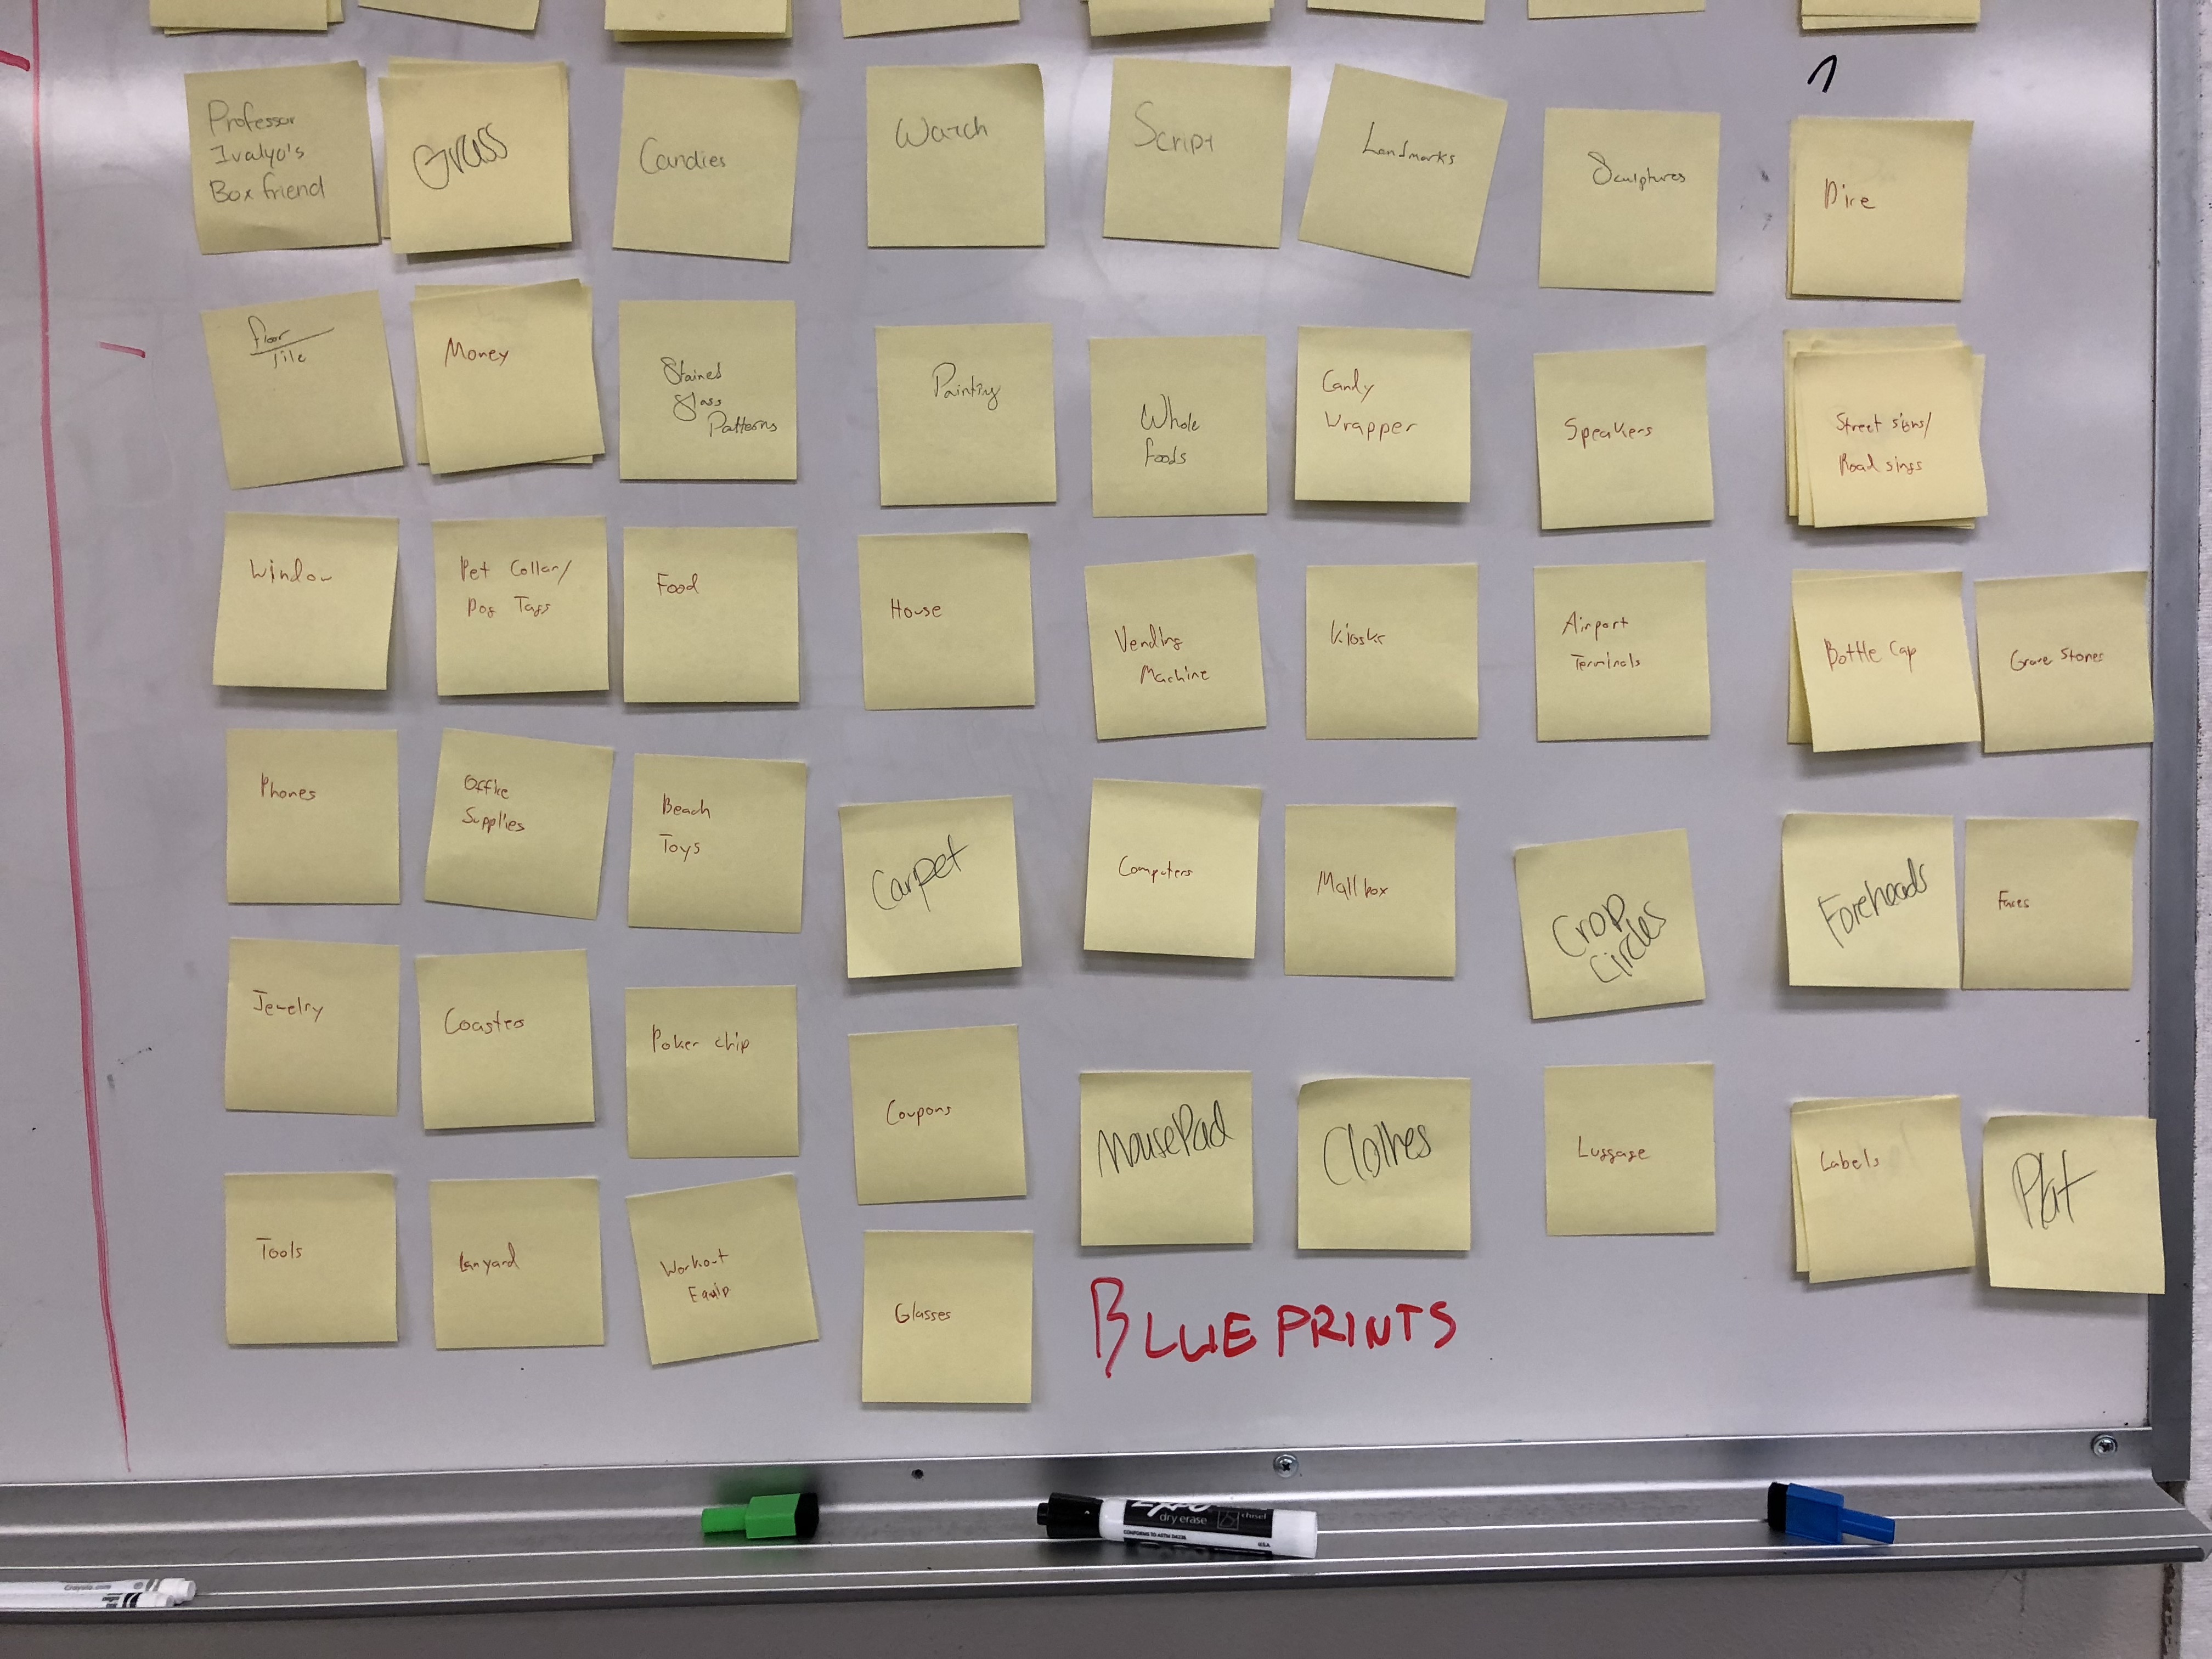 Professor
Ivalyo's
Box friend
Grass
Candies
Watch
Script
Landmarks
Sculptures
Dire
floor
Tile
Money
Stained
Glass
Patterns
Painting
Whole
Foods
Candy
Wrapper
Speakers
Street signs/
Road sings
Window
Pet Collar/
Dog Tags
Food
House
Vending
Machine
Kiosks
Airport
Terminals
Bottle Cap
Grave Stones
Phones
Office
Supplies
Beach
Toys
Carpet
Computers
Mailbox
Crop
Circles
Foreheads
Faces
Jewelry
Coasters
Poker chip
Coupons
MousePad
Clothes
Luggage
Labels
Tools
Lanyard
Workout
Equip
Glasses
BLUE PRINTS
EXPO
dry erase
chisel
CONFORMS TO ASTM D4236
USA
Crayola